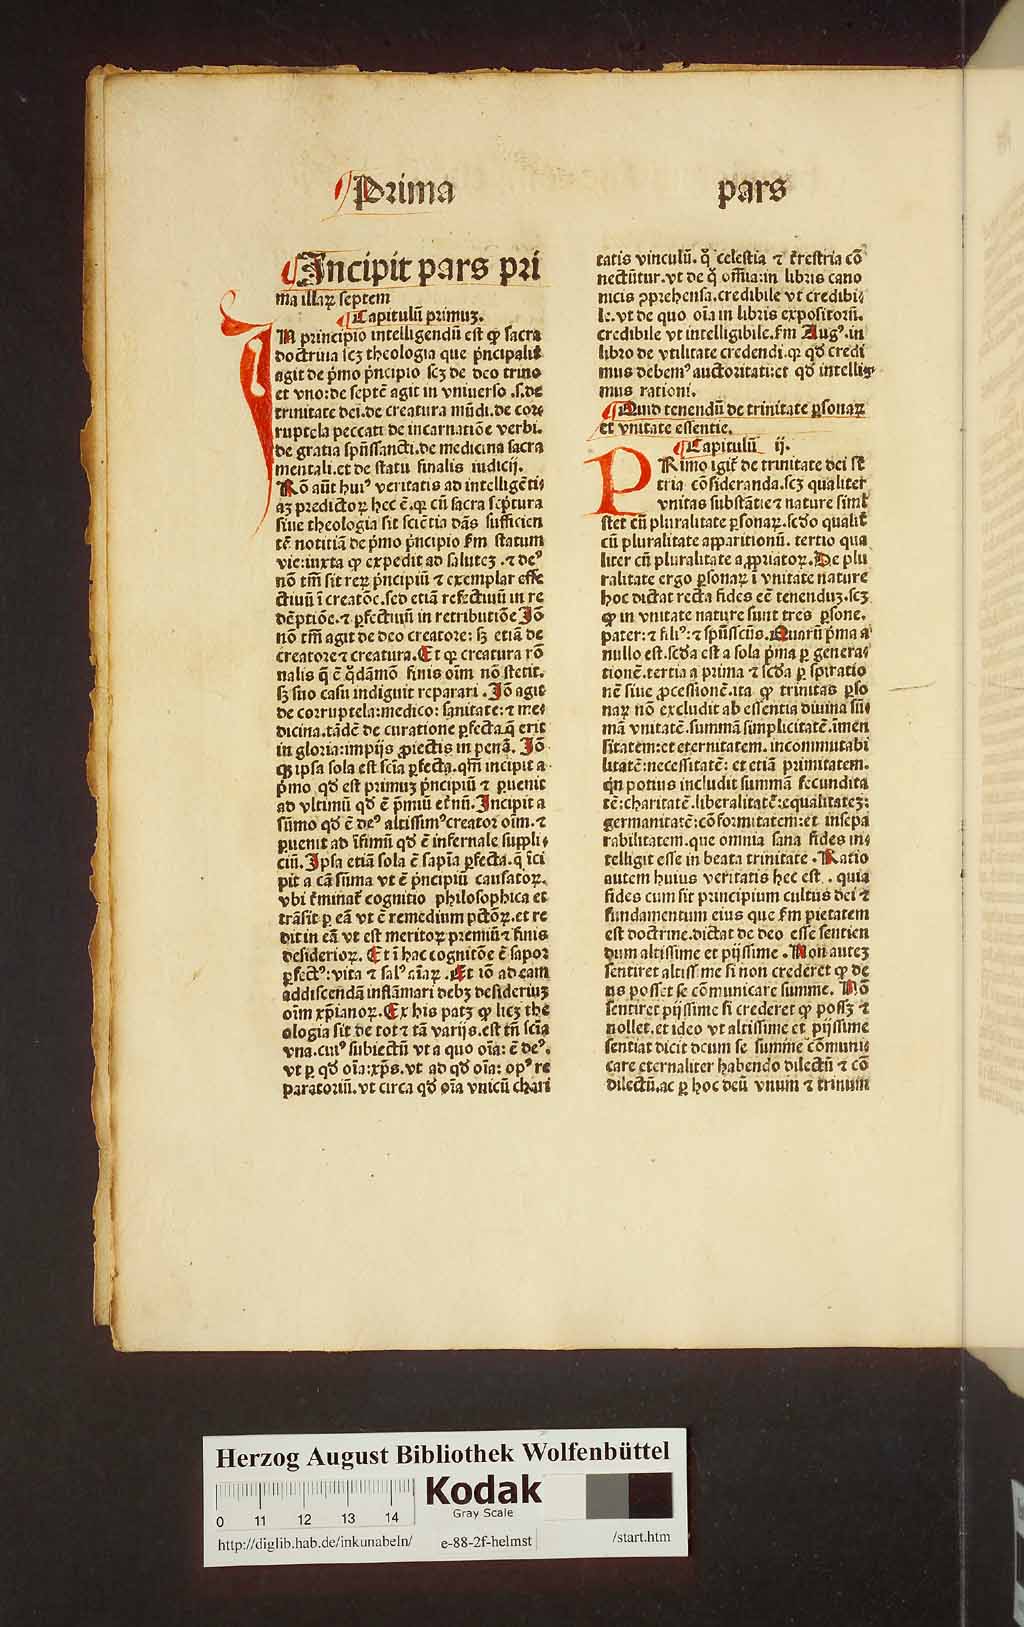 Prima pars
Incipit pars pri
ma illaꝝ septem
Capitulū primuꝫ.
IN principio intelligendū est ꝙ sacra
doctrina scꝫ theologia que pͥncipaliṫ
agit de pͥmo pͥncipio scꝫ de deo trino
et vno: de septē agit in vniuerso .s. de
trinitate dei. de creatura mūdi. de cor
ruptela peccati de incarnatiōe verbi.
de gratia spūssancti. de medicina sacra
mentali. et de statu finalis iudicij.
Rō aūt huiꝰ veritatis ad intelligētiaꝫ
predictoꝝ hec ē. ꝙ cū sacra scͥptura
siue theologia sit sciētia dās sufficien
tē notitiā de pͥmo pͥncipio ẜm statum
vie: iuxta ꝙ expedit ad saluteꝫ . ⁊ deꝰ
nō tm̄ sit reꝝ pͥncipiū ⁊ exemplar effe
ctiuū ī creatōe. sed etiā refectiuū in re
dēptiōe. ⁊ ꝑfectiuū in retributiōe Iō
nō tm̄ agit de deo creatore: sꝫ etiā de
creatore ⁊ creatura. Et ꝙ creatura rō
nalis q̄ ē quodāmō finis oīm nō stetit.
sꝫ suo casu indiguit reparari . Iō agit
de corruptela: medico: sanitate: ⁊ me
dicina. tādē de curatione ꝑfecta q̄ erit
in gloria: impijs ꝓiectis in penā. Iō
ꝙ ipsa sola est scīa ꝑfecta. qm̄ incipit a
pͥmo qd̓ est primuꝫ pͥncipiū ⁊ ꝑuenit
ad vltimū qd̓ ē pͥmiū et̓nū. Incipit a
sūmo qd̓ ē deꝰ altissimꝰ creator oīm. ⁊
ꝑuenit ad īfimū qd̓ ē infernale suppli
ciū. Ipsa etiā sola ē sapīa ꝑfecta. q̄ īci
pit a cā sūma vt ē pͥncipiū causatoꝝ.
vbi t̓minat̓ cognitio philosophica et
trāsit ꝑ eā vt ē remedium pctōꝝ. et re
dit in eā vt est meritoꝝ premiū ⁊ finis
desiderioꝝ. Et ī hac cognitōe ē sapor
ꝑfectꝰ: vita ⁊ salꝰ aīaꝝ. Et iō ad eam
addiscendā inflāmari debꝫ desideriuꝫ
oīm xp̄ianoꝝ. Ex his patꝫ ꝙ licꝫ the
ologia sit de tot ⁊ tā varijs. est tn̄ scīa
vna. cuiꝰ subiectū vt a quo oīa: ē deꝰ.
vt ꝑ qd̓ oīa: xp̄s. vt ad qd̓ oīa: opꝰ re
paratoriū. vt circa qd̓ oīa vnicū chari
tatis vinculū. qͦ celestia ⁊ t̓restria cō
nectūtur. vt de qͦ oīa: in libris cano
nicis ꝯprehensa. credibile vt credibi
le. vt de quo oīa in libris expositorū.
credibile vt intelligibile. ẜm Augꝰ. in
libro de vtilitate credendi. ꝙ qd̓ credi
mus debemꝰ auctoritati: et qd̓ intelligi
mus rationi.
Quid tenendū de trinitate ꝑsonaꝝ
et vnitate essentie.
Capitulū ij.
PRimo igit̓ de trinitate dei sūt
tria cōsideranda. scꝫ qualiter
vnitas substātie ⁊ nature siml̓
stet cū pluralitate ꝑsonaꝝ. scd̓o qualit̓
cū pluralitate apparitionū. tertio qua
liter cū pluralitate appropriatoꝝ. De plu
ralitate ergo ꝑsonaꝝ ī vnitate nature
hoc dictat recta fides eē tenenduꝫ. scꝫ
ꝙ in vnitate nature sunt tres ꝑsone.
pater: ⁊ filiꝰ: ⁊ spūsscūs. Quarū pͥma a
nullo est. scd̓a est a sola pͥma ꝑ genera
tionē. tertia a prima ⁊ scd̓a ꝑ spiratio
nē siue ꝓcessionē. ita ꝙ trinitas ꝑso
naꝝ nō excludit ab essentia diuina sū
mā vnitatē. summā simplicitatē. īmen
sitatem: et eternitatem. incommutabi
litatē: necessitatē: et etiā primitatem.
quin potius includit summā fecundita
tē: charitatē. liberalitatē: equalitateꝫ:
germanitatē: cōformitatem: et insepa
rabilitatem. que omnia sana fides in
telligit esse in beata trinitate . Ratio
autem huius veritatis hec est . quia
fides cum sit principium cultus dei ⁊
fundamentum eius que ẜm pietatem
est doctrine. dictat de deo esse sentien
dum altissime et pijssime . Non auteꝫ
sentiret altissime si non crederet ꝙ de
us posset se cōmunicare summe. Nō
sentiret pijssime si crederet ꝙ possꝫ ⁊
nollet. et ideo vt altissime et pijssime
sentiat dicit deum se summe cōmuni
care eternaliter habendo dilectū ⁊ cō
dilectū. ac ꝑ hoc deū vnum ⁊ trinum
Herzog August Bibliothek Wolfenbüttel
0 11 12 13 14
Kodak
Gray Scale
http://diglib.hab.de/inkunabeln/ e-88-2f-helmst /start.htm